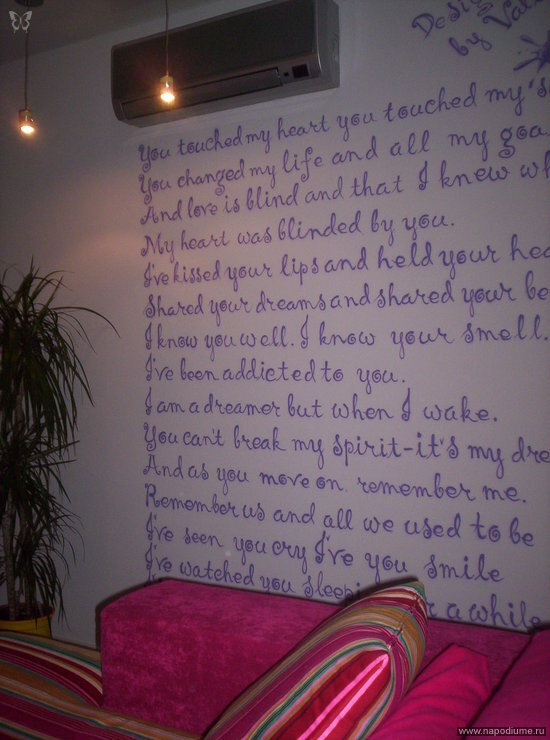 Design
by
You touched my heart you touched my
You changed my life and all my
And love is blind and that I knew
My heart was blinded by you.
I've kissed your lips and held your
Shared your dreams and shared your
I know you well. I know your smell.
I've been addicted to you.
I am a dreamer but when I wake.
You can't break my spirit-it's my
And as you move on remember me.
Remember us and all we used to be
I've seen you cry I've you smile
I've watched you a while
www.napodiume.ru